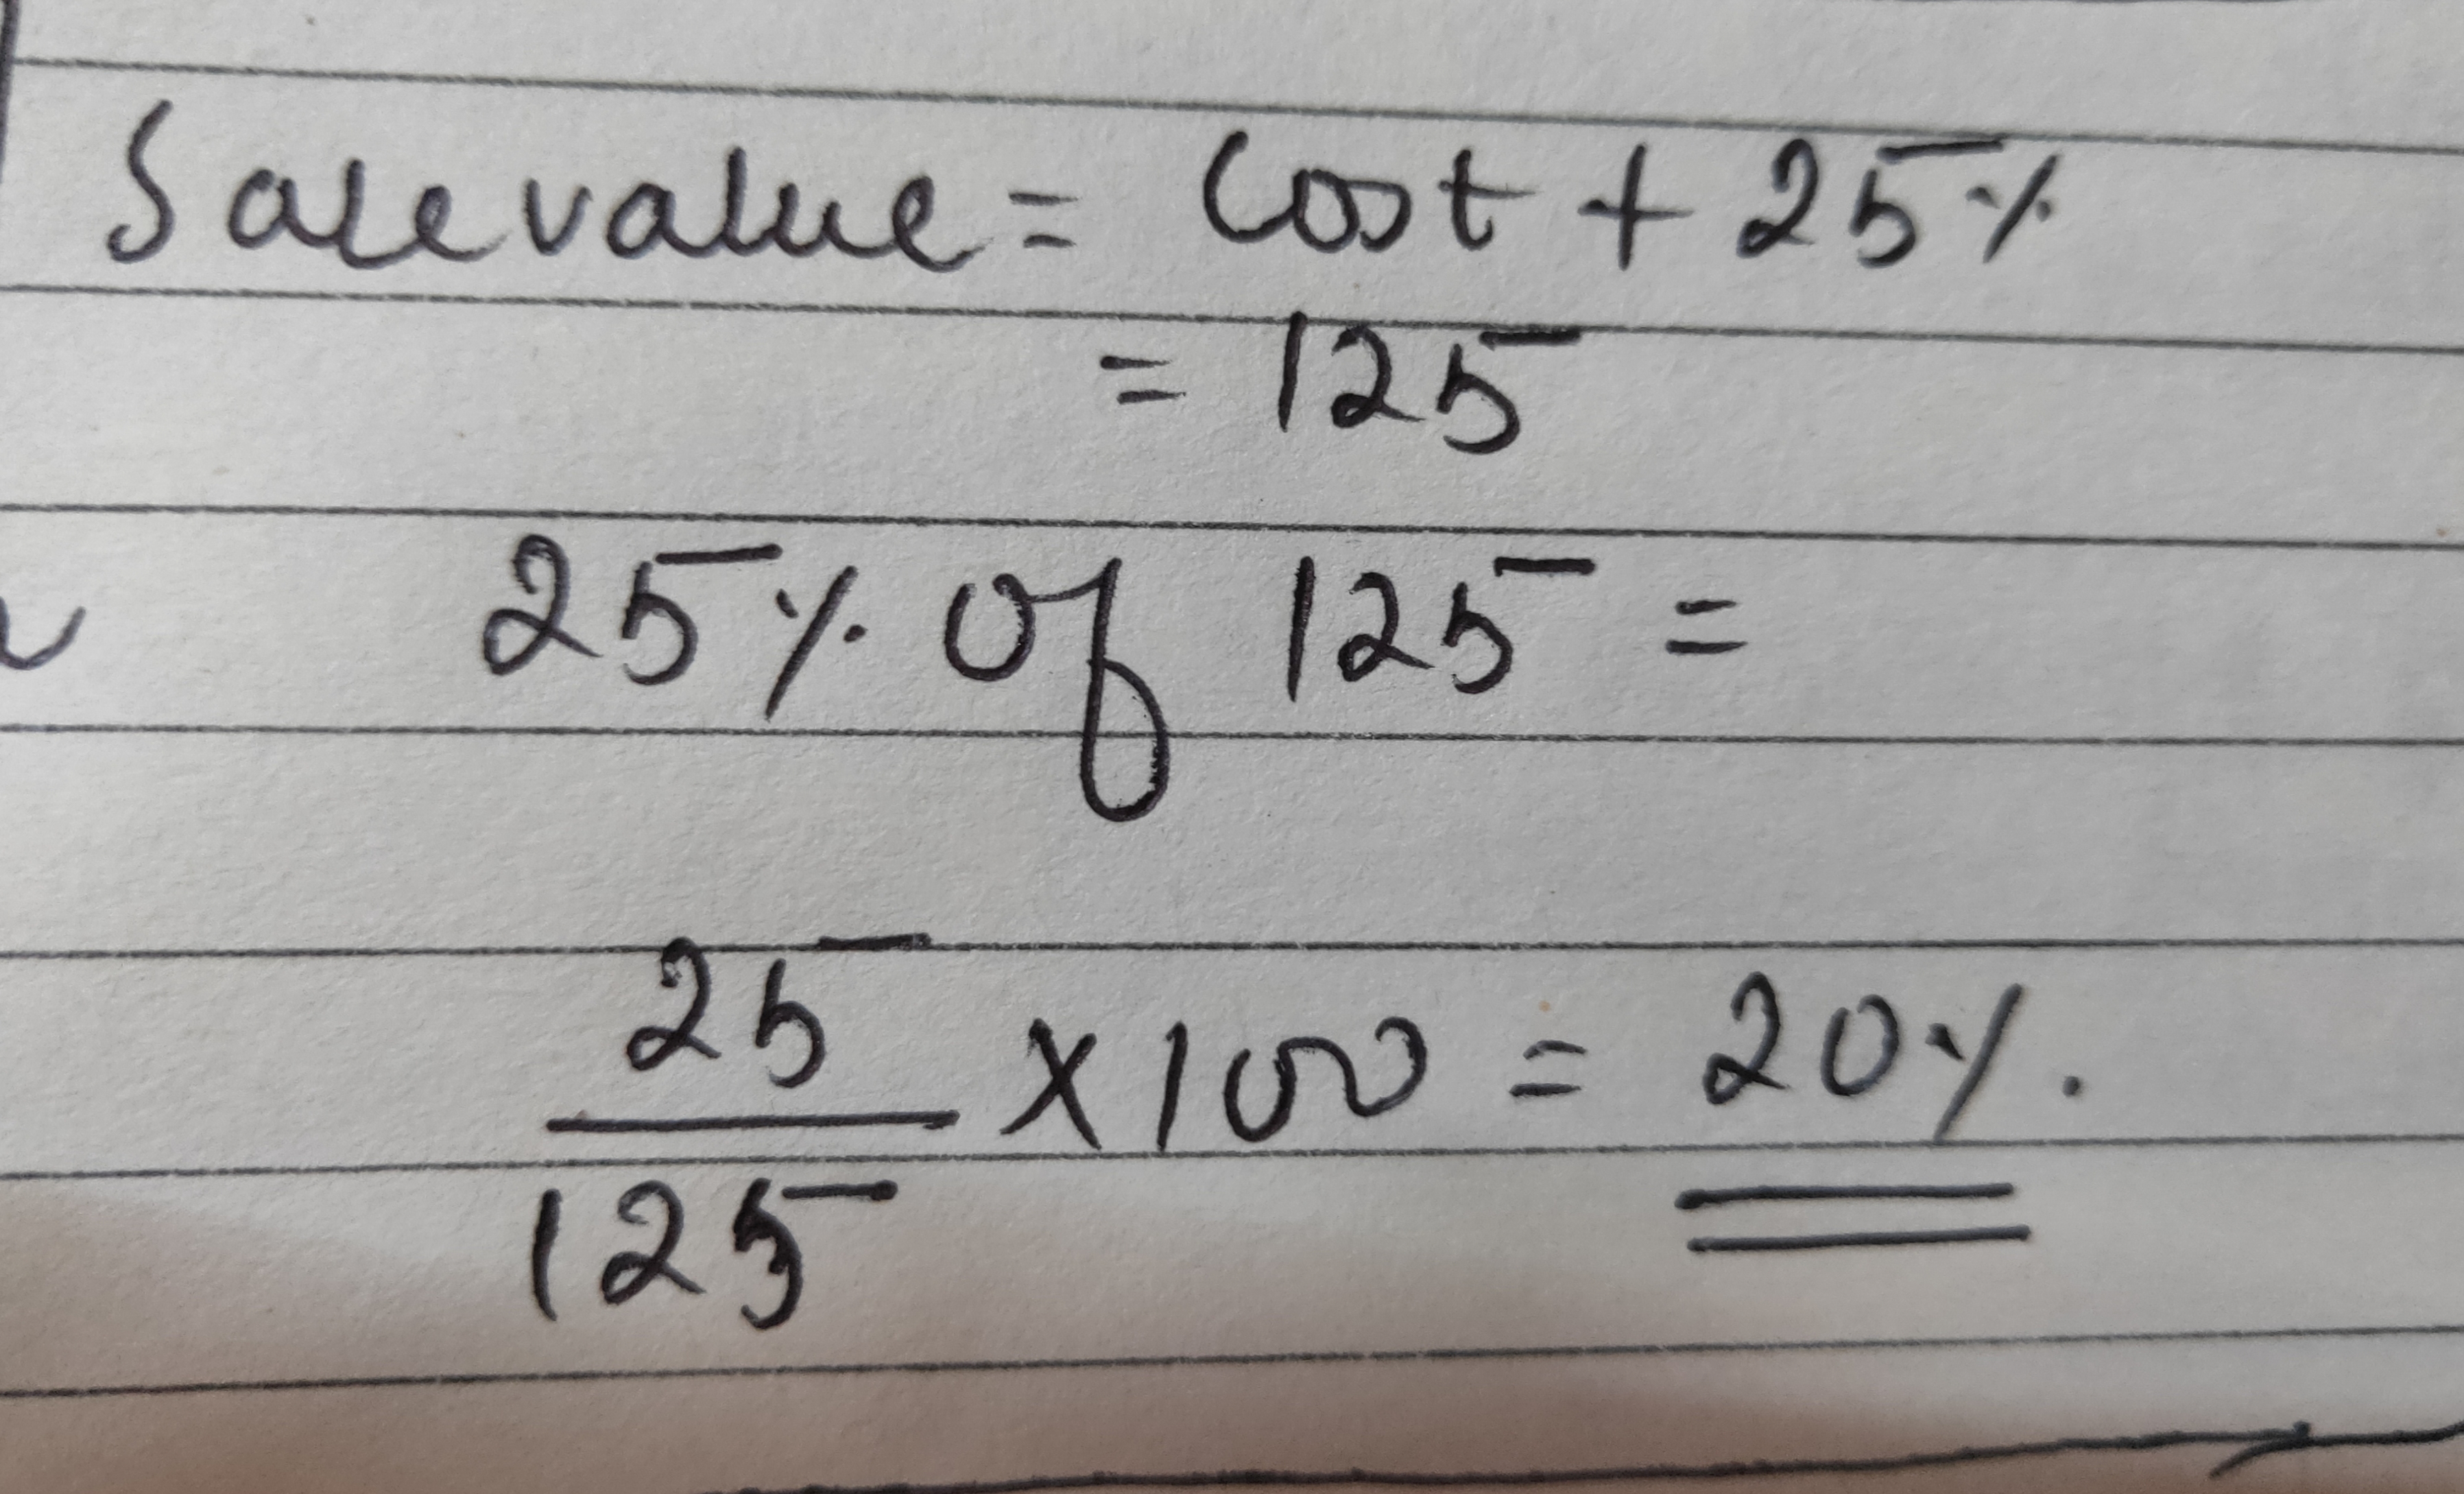 Sale value = Cost + 25%
= 125
25% of 125 =
25
—— × 100 = 20%.
125